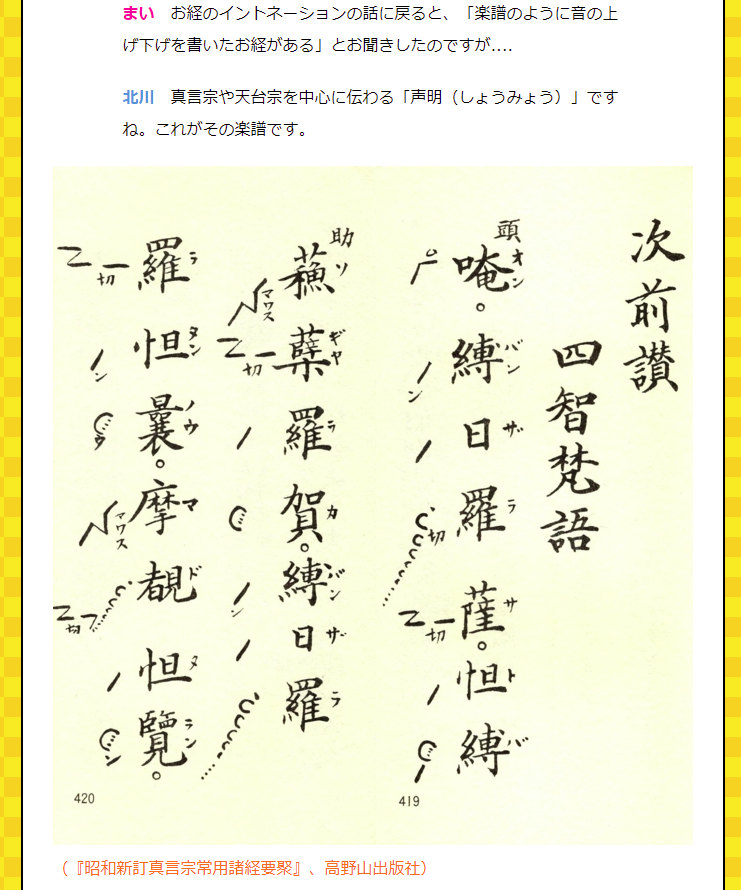 まい　お経のイントネーションの話に戻ると、「楽譜のように音の上
げ下げを書いたお経がある」とお聞きしたのですが‥‥
北川　真言宗や天台宗を中心に伝わる「声明（しょうみょう）」です
ね。これがその楽譜です。
次前讃
四智梵語
頭 唵。縛日羅薩。怛縛
オンバンザラサトバ
切
切
ン
助 蘓蘖羅賀。縛日羅
ソギヤラカバンザラ
マワス
切
ン
羅怛曩。摩覩怛覽。
ラタンノウマドタラン
切
ン
ウ
マワス
切
ン
420
419
（『昭和新訂真言宗常用諸経要聚』、高野山出版社）